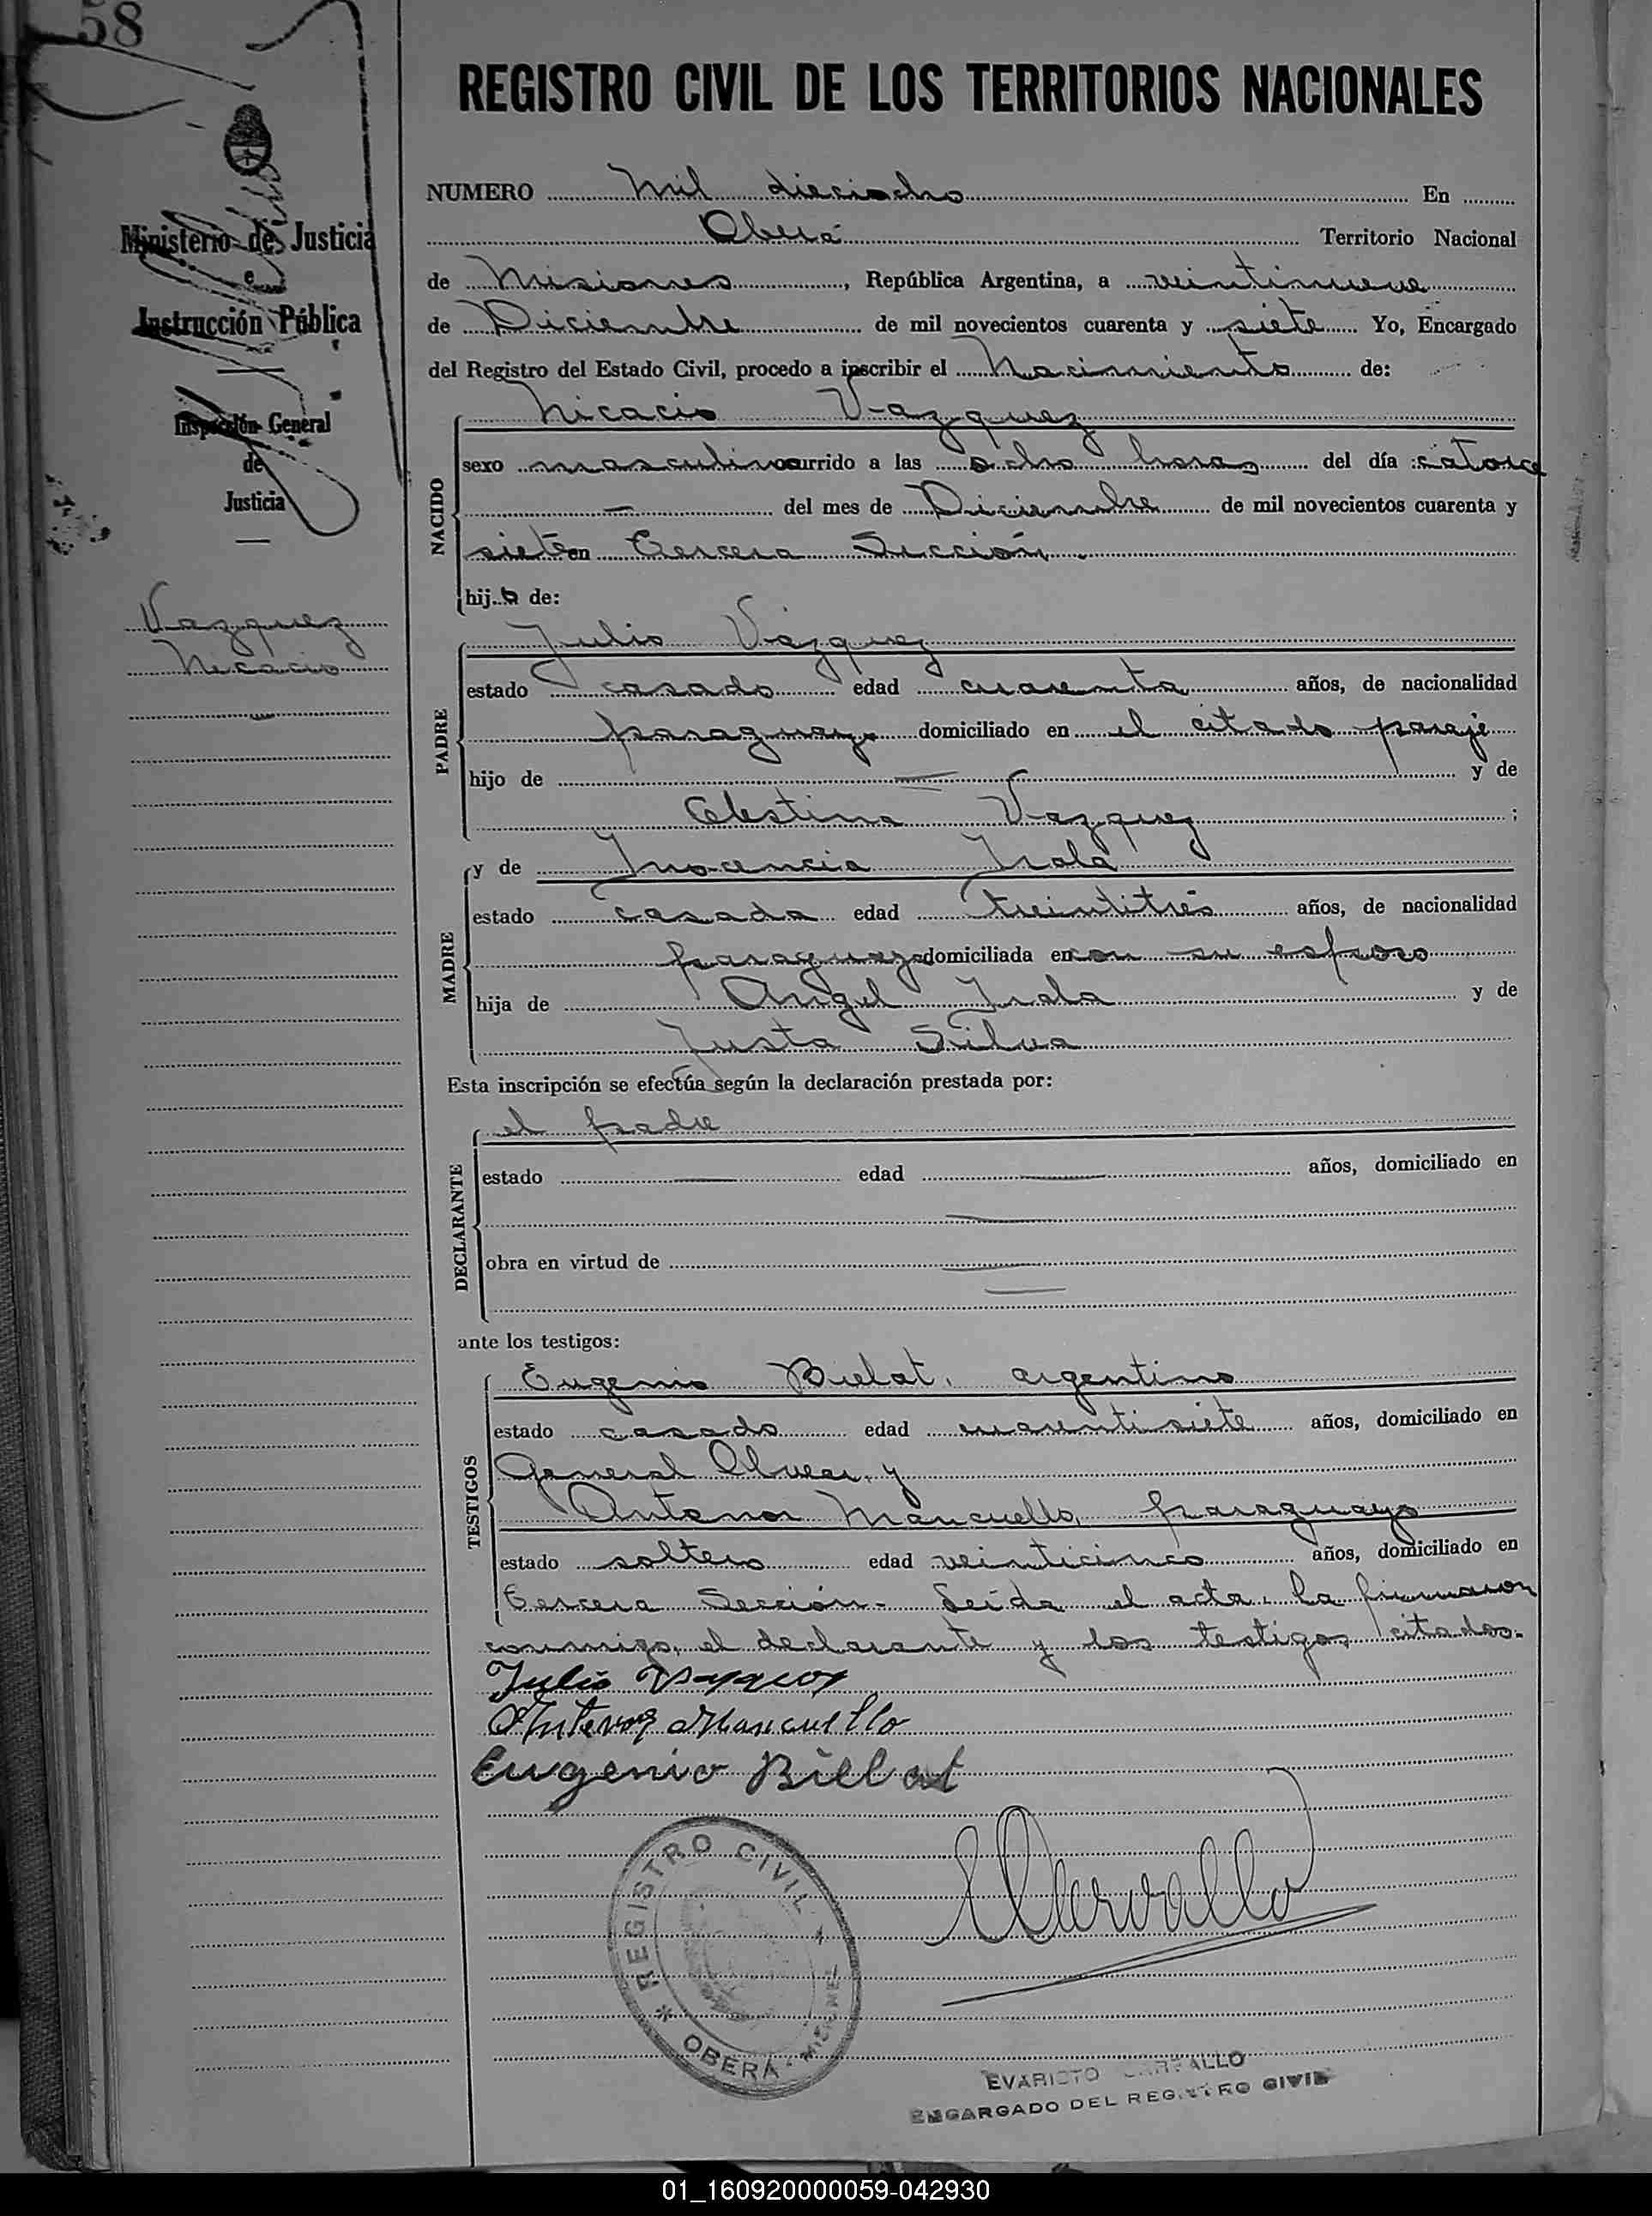 58
REGISTRO CIVIL DE LOS TERRITORIOS NACIONALES
Ministerio de Justicia
e
Instrucción Pública
Inspección General
de
Justicia
Vazquez
Nicacio
NUMERO Mil dieciocho En
Oberá Territorio Nacional
de Misiones, República Argentina, a veintinueve
de Diciembre de mil novecientos cuarenta y siete Yo, Encargado
del Registro del Estado Civil, procedo a inscribir el Nacimiento de:
NACIDO
Nicacio Vazquez
sexo masculino ocurrido a las ocho horas del día catorce
— del mes de Diciembre de mil novecientos cuarenta y
siete en Tercera Sección.
hijo de:
PADRE
Julio Vazquez
estado casado edad cuarenta años, de nacionalidad
paraguayo domiciliado en el citado paraje
hijo de — y de
Celestina Vazquez ;
MADRE
y de Inocencia Irala
estado casada edad treintitrés años, de nacionalidad
paraguaya domiciliada en con su esposo
hija de Angel Irala y de
Justa Silva
Esta inscripción se efectúa según la declaración prestada por:
DECLARANTE
el padre
estado — edad — años, domiciliado en
—
obra en virtud de —
—
ante los testigos:
TESTIGOS
Eugenio Bielat, argentino
estado casado edad cuarentisiete años, domiciliado en
General Alvear, y
Antenor Mancuello, paraguayo
estado soltero edad veinticinco años, domiciliado en
Tercera Sección.- Leída el acta, la firmaron
conmigo, el declarante y los testigos citados.-
Julio Vazquez
Antenor Mancuello
Eugenio Bielat
REGISTRO CIVIL
OBERÁ - MISIONES
EVARISTO CARVALLO
ENCARGADO DEL REGISTRO CIVIL
01_160920000059-042930